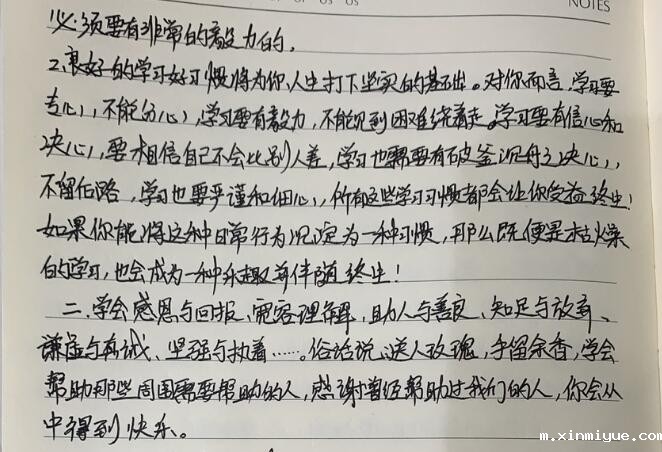 NOTES
必须要有非常的毅力的,
2、良好的学习好习惯将为你人生打下坚实的基础。对你而言,学习要
专心,不能分心,学习要有毅力,不能见到困难绕着走。学习要有信心和
决心,要相信自己不会比别人差,学习也需要有破釜沉舟之决心,
不留后路,学习也要严谨和细心,所有这些学习习惯都会让你受益终生!
如果你能将这种日常行为沉淀为一种习惯,那么既便是枯燥
的学习,也会成为一种乐趣并伴随终生!
二、学会感恩与回报、宽容理解、助人与善良、知足与放弃、
谦虚与真诚、坚强与执着……。俗话说,送人玫瑰,手留余香,学会
帮助那些周围需要帮助的人,感谢曾经帮助过我们的人,你会从
中得到快乐。
m.xinmiyue.com